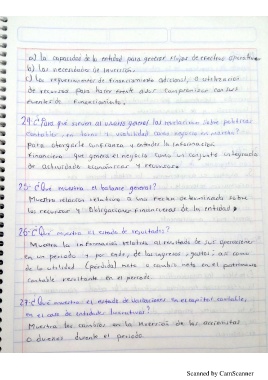 a) la capacidad de la entidad para generar flujos de efectivo operativo
b) las necesidades de inversión
c) los requerimientos de financiamiento adicional, o utilización
de recursos para hacer frente a sus compromisos con sus
fuentes de financiamiento.
24-¿Para qué sirven al usuario general las revelaciones sobre políticas
contables, en torno a viabilidad como negocio en marcha?
para otorgarle confianza y entender la información
financiera que genera el negocio como un conjunto integrado
de actividades económicas y recursos.
25-¿Qué muestra el balance general?
Muestra relación relativa a una fecha determinada sobre
los recursos y obligaciones financieras de la entidad.
26-¿Qué muestra el estado de resultados?
Muestra la información relativa al resultado de sus operaciones
en un periodo y por ende, de los ingresos, gastos, así como
de la utilidad (pérdida) neta o cambio neto en el patrimonio
contable resultante en el periodo.
27-¿Qué muestra el estado de variaciones en el capital contable,
en el caso de entidades lucrativas?
Muestra los cambios en la inversión de los accionistas
o dueños durante el periodo.
Scanned by CamScanner